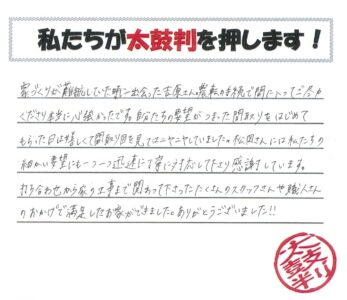 私たちが太鼓判を押します！
家づくりが難航していた時に出会った吉原さん。農転の手続で間に入ってご尽力
くださり本当に心強かったです。自分たちの要望がつまった間取りをはじめて
もらった日は嬉しくて間取り図を見てはニヤニヤしていました。松岡さんには私たちの
細かい要望にも一つ一つ迅速に丁寧に対応して下さり感謝しています。
打ち合わせから家の工事まで関わって下さったたくさんのスタッフさんや職人さん
のおかげで満足したお家ができました。ありがとうございました!!
太鼓判